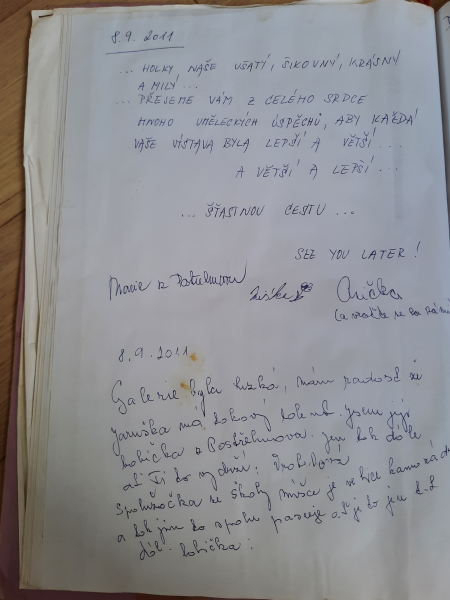 8.9.2011
... HOLKY NAŠE UŠATÍ, ŠIKOVNÝ, KRÁSNÝ
A MILÝ ...
... PŘEJEME VÁM Z CELÉHO SRDCE
MNOHO UMĚLECKÝCH ÚSPĚCHŮ, ABY KAŽDÁ
VAŠE VÝSTAVA BYLA LEPŠÍ A VĚTŠÍ ...
A VĚTŠÍ A LEPŠÍ ...
... ŠŤASTNOU CESTU ...
SEE YOU LATER!
Marie z Postřelmova
Anička
(a vraťte se za námi
8.9.2011
Galerie byla hezká, mám radost že
Jaruška má takový talent. Jsem její
babička z Postřelmova. Jen tak dále
ať Ti to vydrží.
Spolužačka ze školy
a tak jim to spolu pasuje ať je to jen
dál. babička